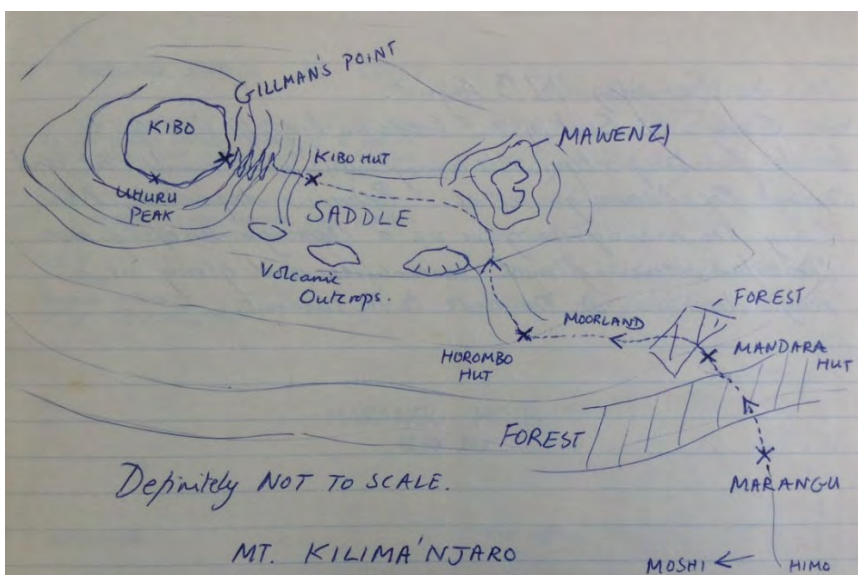 GILLMAN'S POINT
KIBO
MAWENZI
KIBO HUT
UHURU
PEAK
SADDLE
Volcanic
Outcrops.
FOREST
MOORLAND
HOROMBO
HUT
MANDARA
HUT
FOREST
MARANGU
Definitely NOT TO SCALE.
MT. KILIMA'NJARO
MOSHI
HIMO